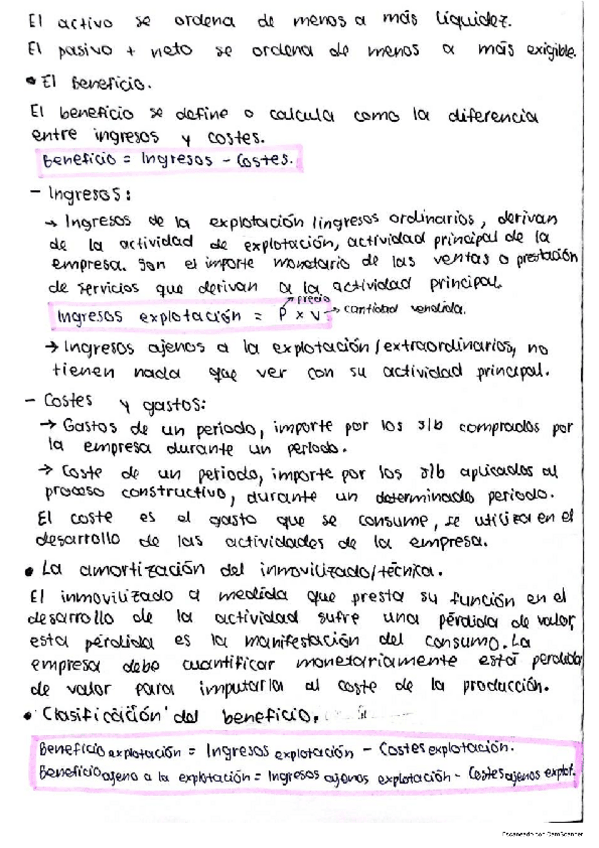 El activo se ordena de menos a más liquidez.
El pasivo + neto se ordena de menos a más exigible.
• El Beneficio.
El beneficio se define o calcula como la diferencia
entre ingresos y costes.
Beneficio = Ingresos - Costes.
- Ingresos:
→ Ingresos de la explotación/ingresos ordinarios, derivan
de la actividad de explotación, actividad principal de la
empresa. Son el importe monetario de las ventas o prestación
de servicios que derivan a la actividad principal.
Ingresos explotación = P x V
precio
→ cantidad vendida.
→ Ingresos ajenos a la explotación/extraordinarios, no
tienen nada que ver con su actividad principal.
- Costes y gastos:
→ Gastos de un periodo, importe por los s/b comprados por
la empresa durante un periodo.
→ Coste de un periodo, importe por los s/b aplicados al
proceso constructivo, durante un determinado periodo.
El coste es el gasto que se consume, se utiliza en el
desarrollo de las actividades de la empresa.
• La amortización del inmovilizado/técnica.
El inmovilizado a medida que presta su función en el
desarrollo de la actividad sufre una pérdida de valor,
esta pérdida es la manifestación del consumo. La
empresa debe cuantificar monetariamente está perdida
de valor para imputarla al coste de la producción.
• Clasificación del beneficio.
Beneficio explotación = Ingresos explotación - Costes explotación.
Beneficio ajeno a la explotación = Ingresos ajenos explotación - Costes ajenos explot.
Escaneado con CamScanner